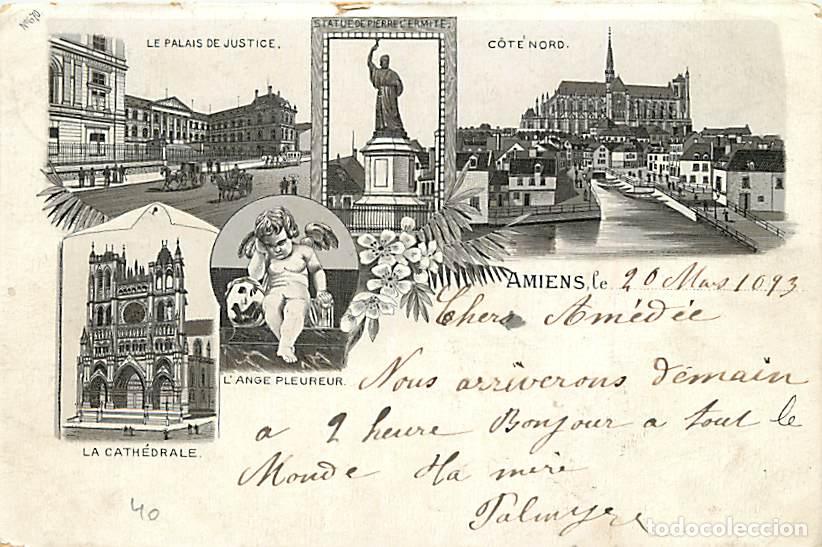 No 670
STATUE DE PIERRE L'ERMITE.
LE PALAIS DE JUSTICE.
CÔTÉ NORD.
AMIENS, le 20 Mars 1893
Chers Amédée
L'ANGE PLEUREUR.
Nous arriverons démain
a 2 heure Bonjour a tout le
Monde Ha mère
LA CATHÉDRALE.
Palmyre
40
todocoleccion